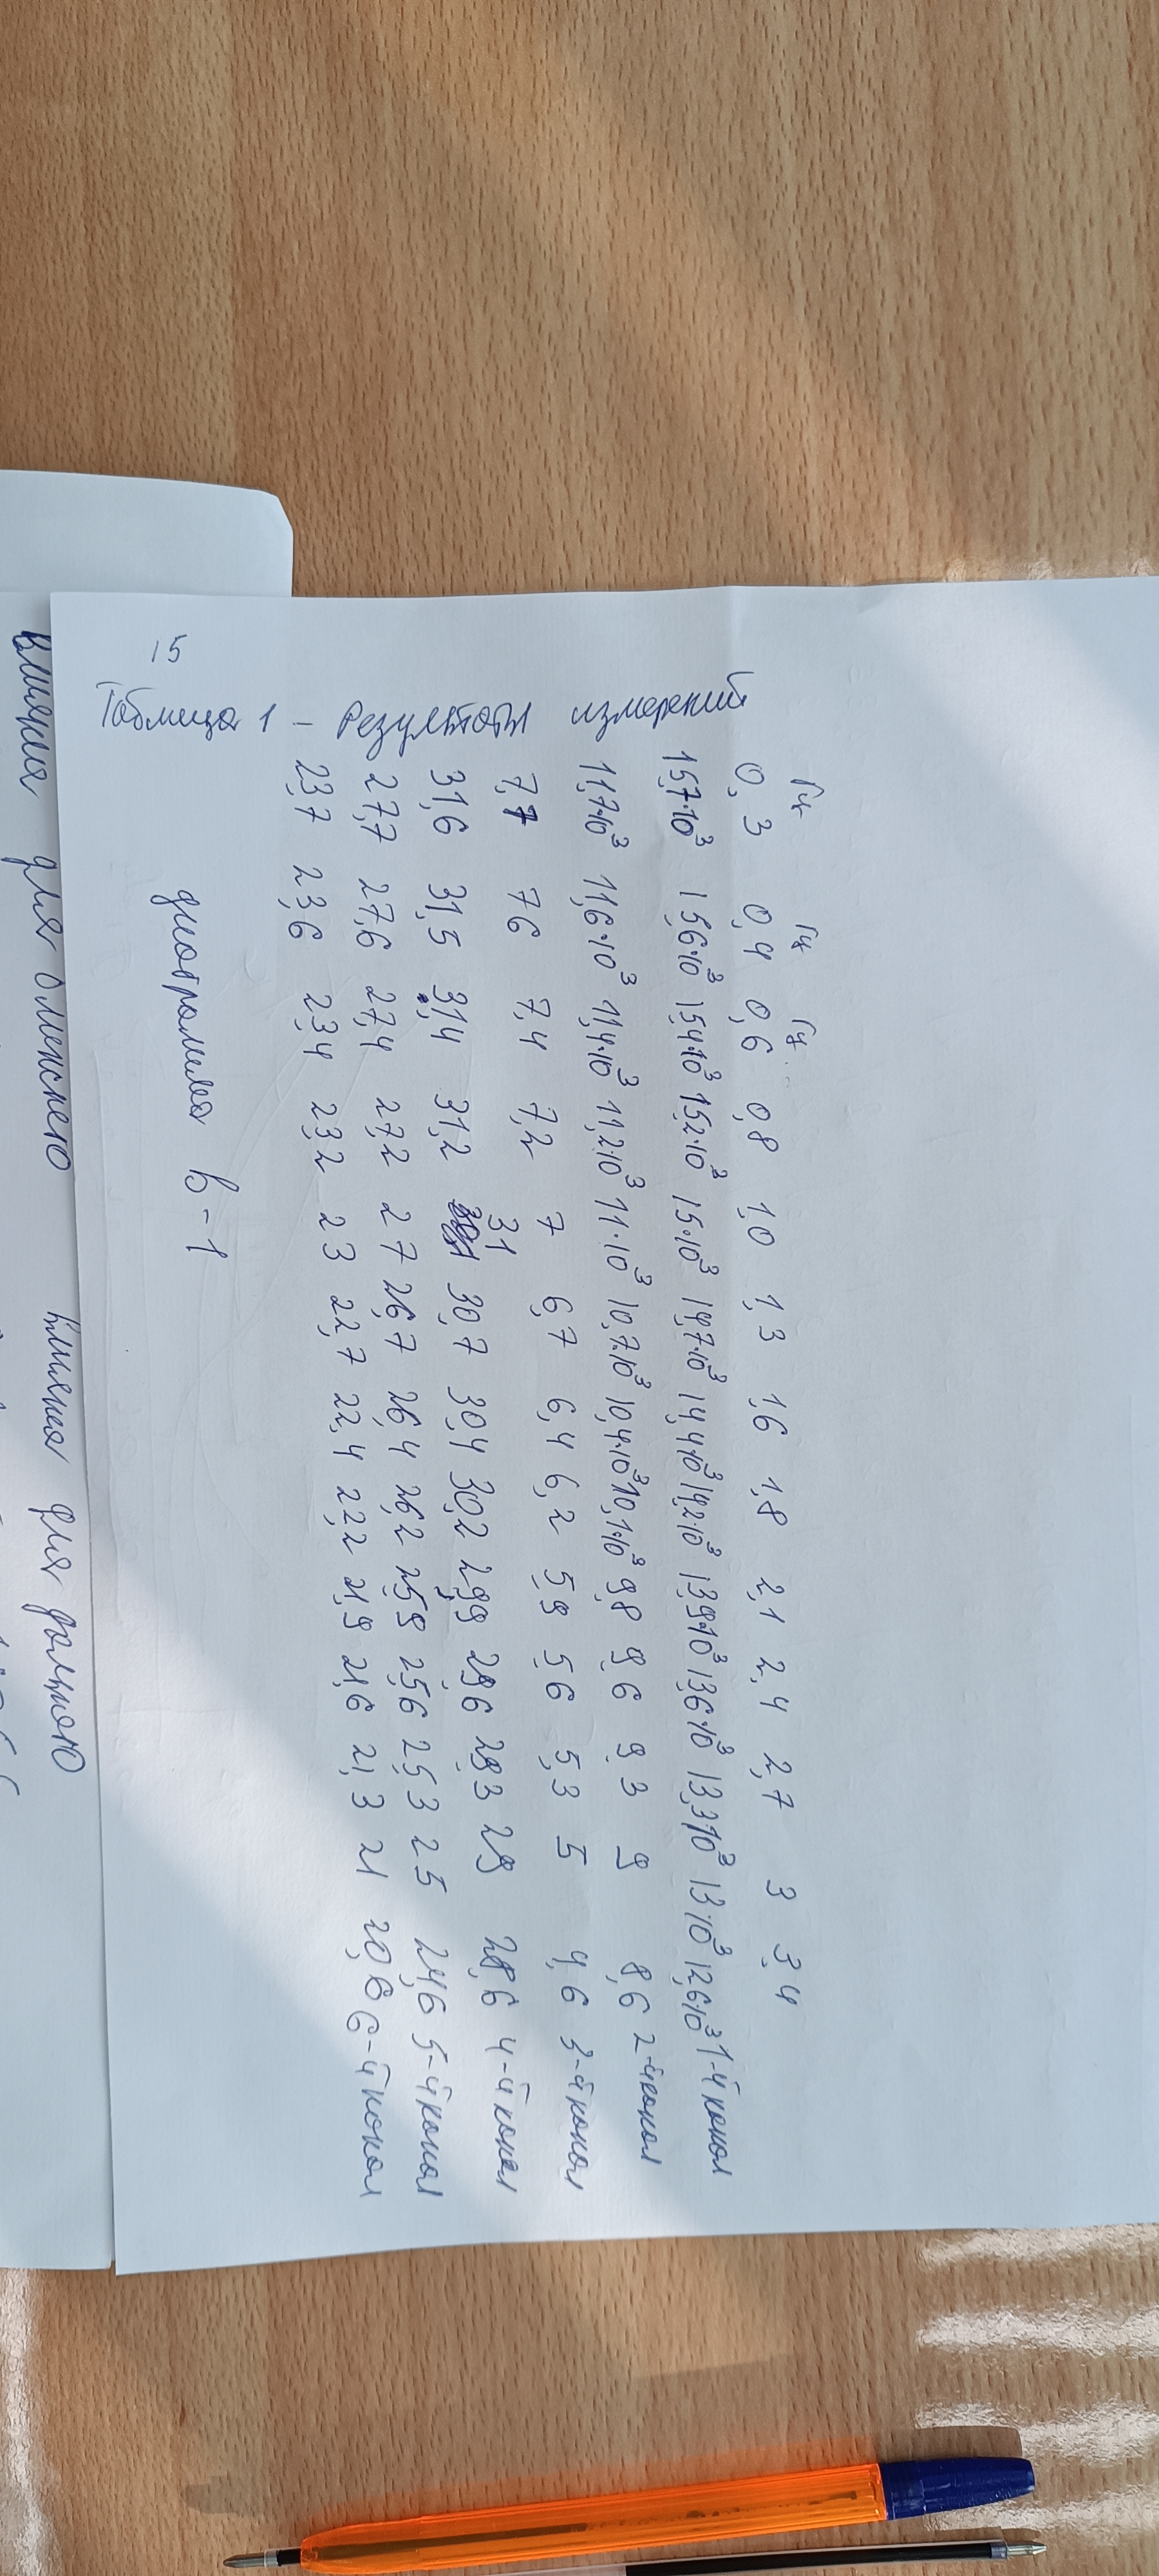 Гц Гц Гц...
0,3 0,4 0,6 0,8 1,0 1,3 1,6 1,8 2,1 2,4 2,7 3 3,4
15,7·10³ 15,6·10³ 15,4·10³ 15,2·10³ 15·10³ 14,7·10³ 14,4·10³ 14,2·10³ 13,9·10³ 13,6·10³ 13,3·10³ 13·10³ 12,6·10³ 1-й канал
11,7·10³ 11,6·10³ 11,4·10³ 11,2·10³ 11·10³ 10,7·10³ 10,4·10³ 10,1·10³ 9,8 9,6 9,3 9 8,6 2-й канал
7,7 7,6 7,4 7,2 7 6,7 6,4 6,2 5,9 5,6 5,3 5 4,6 3-й канал
31,6 31,5 31,4 31,2 31 30,7 30,4 30,2 29,9 29,6 29,3 29 28,6 4-й канал
27,7 27,6 27,4 27,2 27 26,7 26,4 26,2 25,9 25,6 25,3 25 24,6 5-й канал
23,7 23,6 23,4 23,2 23 22,7 22,4 22,2 21,9 21,6 21,3 21 20,6 6-й канал
Таблица 1 - Результаты измерений
15
диаграмма В-1
для ближнего для дальнего